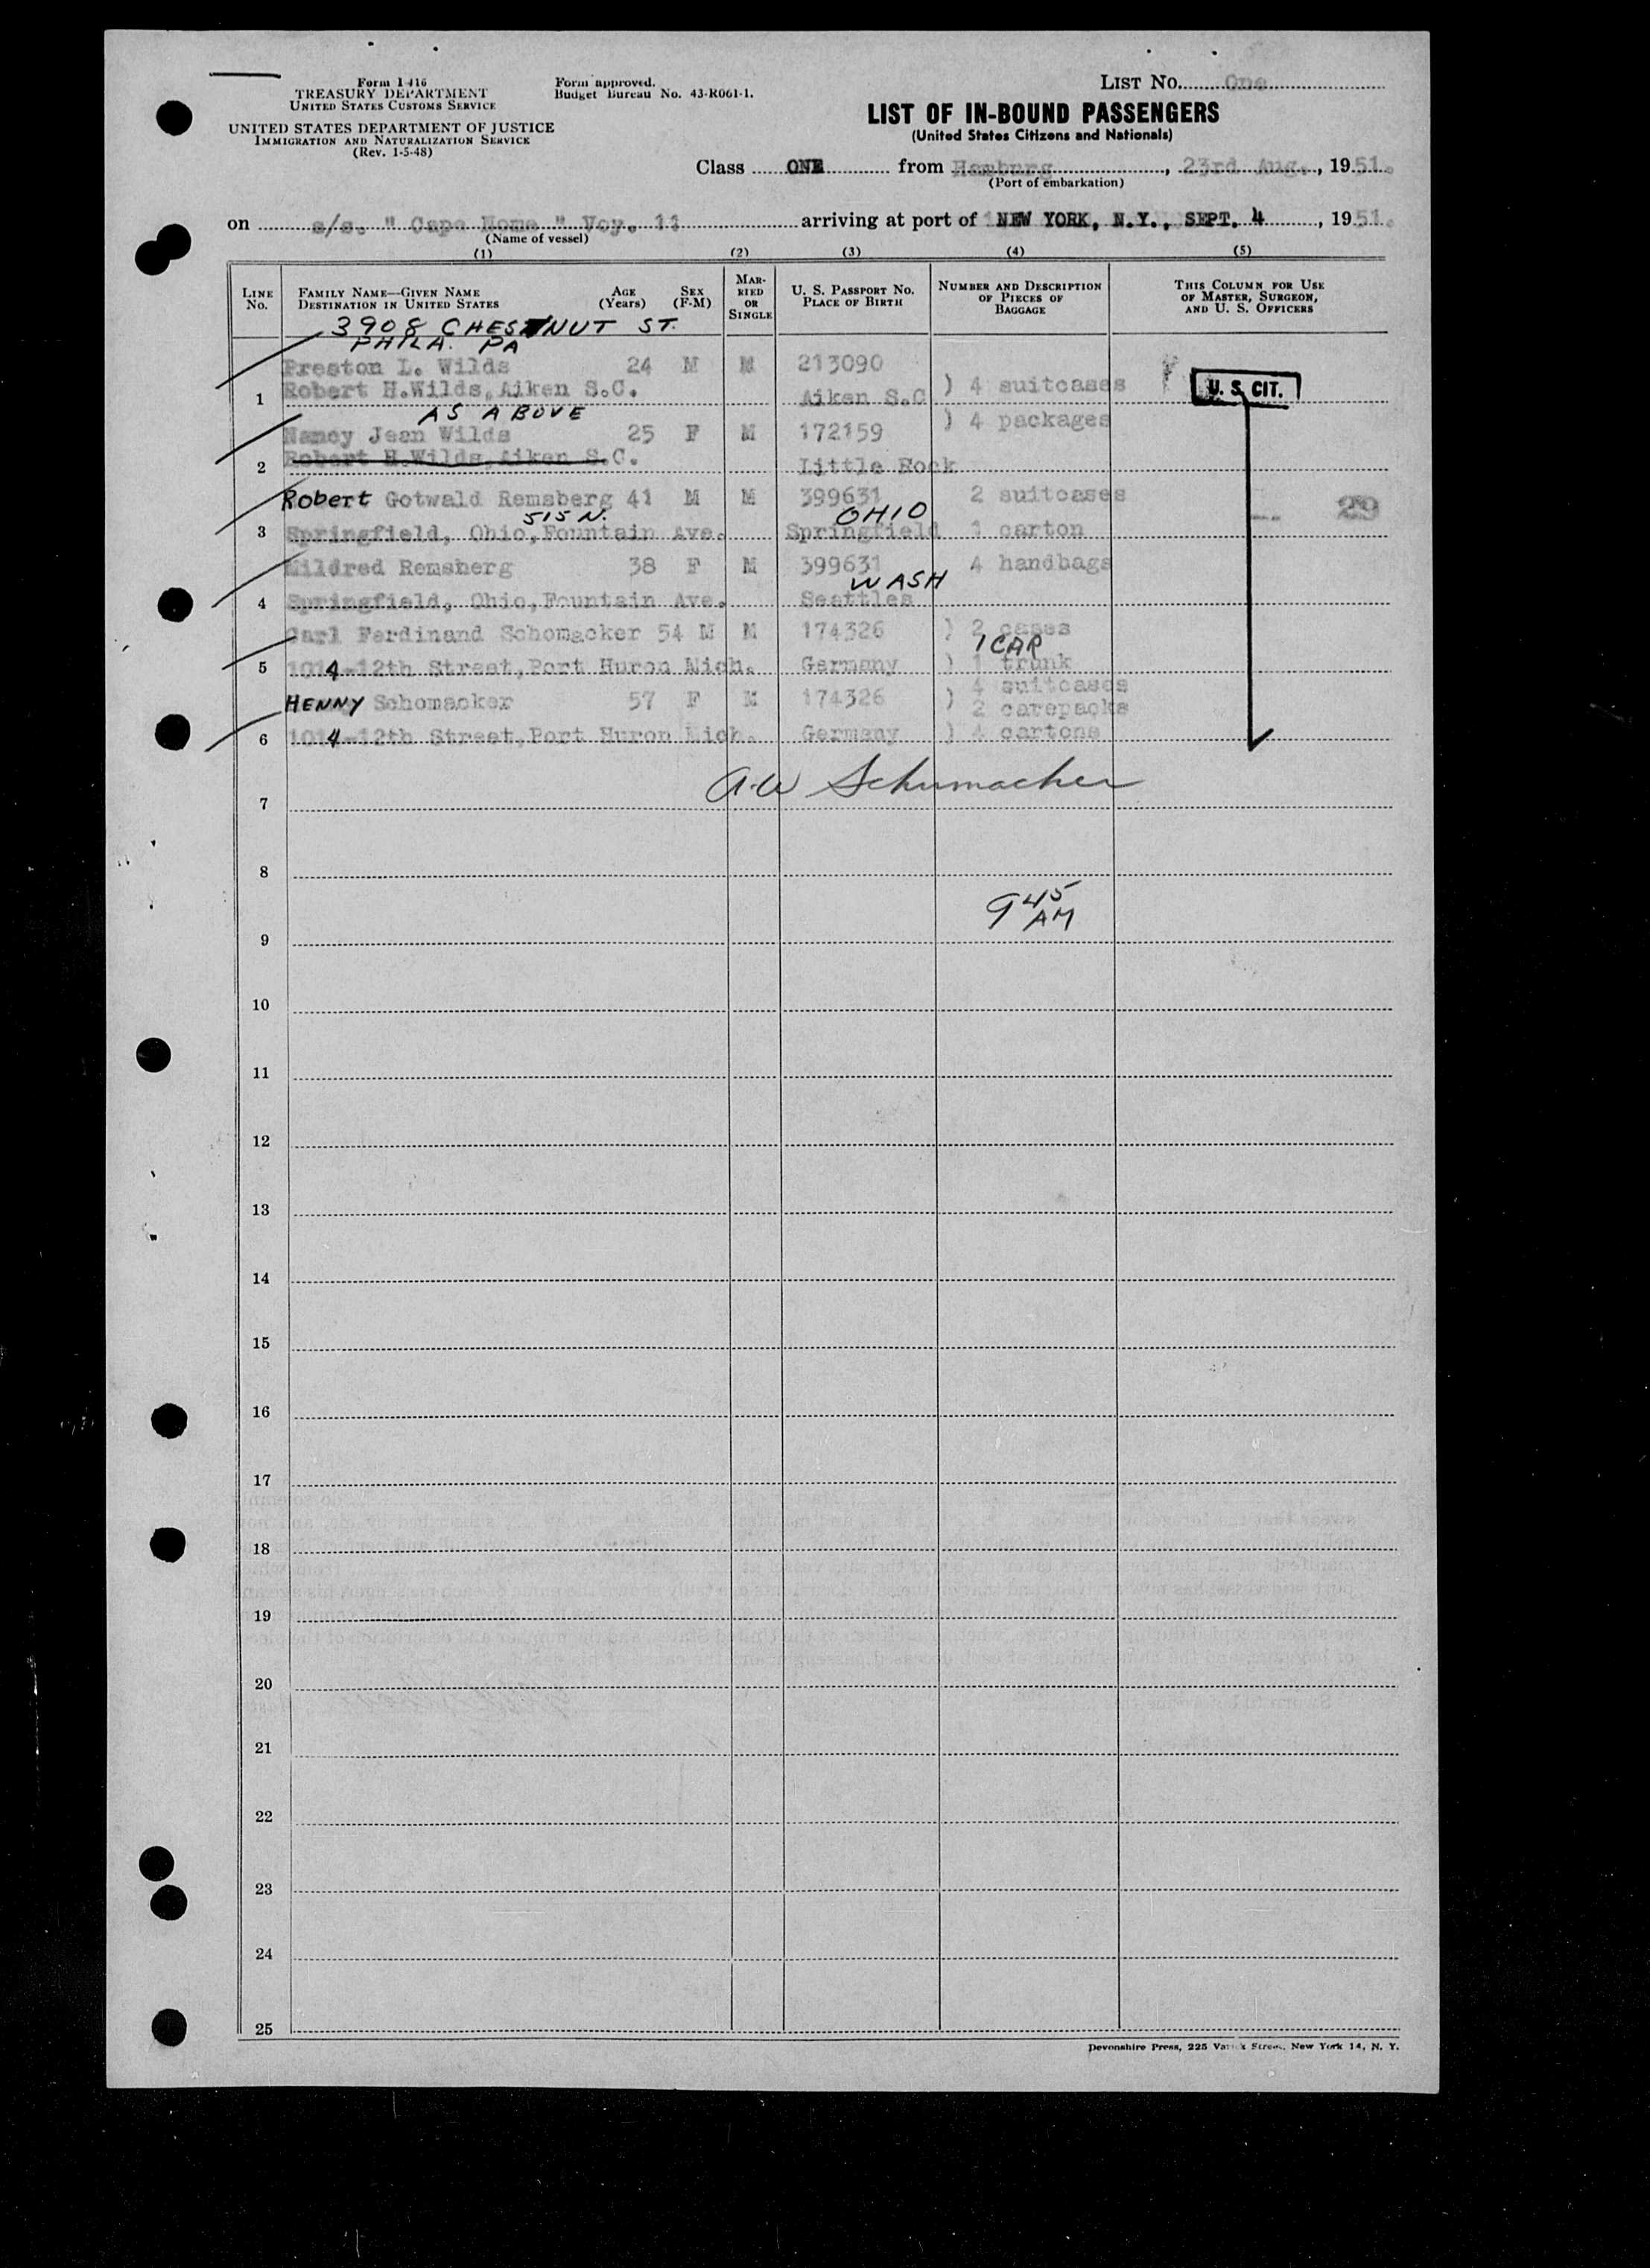 Form I-416
TREASURY DEPARTMENT
UNITED STATES CUSTOMS SERVICE
UNITED STATES DEPARTMENT OF JUSTICE
IMMIGRATION AND NATURALIZATION SERVICE
(Rev. 1-5-48)
Form approved.
Budget Bureau No. 43-R061-1.
LIST No. One
LIST OF IN-BOUND PASSENGERS
(United States Citizens and Nationals)
Class ONE from Hamburg, 23rd Aug., 1951.
(Port of embarkation)
on s/s. " Cape Nome " Voy. 11 arriving at port of NEW YORK, N.Y., SEPT. 4, 1951.
(Name of vessel)
(1) (2) (3) (4) (5)
LINE NO. FAMILY NAME—GIVEN NAME DESTINATION IN UNITED STATES AGE (Years) SEX (F-M) MARRIED OR SINGLE U. S. PASSPORT NO. PLACE OF BIRTH NUMBER AND DESCRIPTION OF PIECES OF BAGGAGE THIS COLUMN FOR USE OF MASTER, SURGEON, AND U. S. OFFICERS
3908 CHESTNUT ST.
PHILA. PA
Preston L. Wilds 24 M M 213090
1 Robert H.Wilds, Aiken S.C. Aiken S.C ) 4 suitcases U. S. CIT.
AS ABOVE
Nancy Jean Wilds 25 F M 172159 ) 4 packages
2 Robert H.Wilds, Aiken S.C. Little Rock
Robert Gotwald Remsberg 41 M M 399631 2 suitcases 29
515 N. OHIO
3 Springfield, Ohio, Fountain Ave. Springfield 1 carton
Mildred Remsberg 38 F M 399631 4 handbags
WASH
4 Springfield, Ohio, Fountain Ave. Seattles
Carl Ferdinand Schomacker 54 M M 174326 ) 2 cases
1 CAR
5 1014-12th Street, Port Huron Mich. Germany ) 1 trunk
4 suitcases
HENNY Schomacker 57 F M 174326 ) 2 carepacks
6 1014-12th Street, Port Huron Mich. Germany ) 4 cartons
A.W Schumacher
7
8
9 45 AM
9
10
11
12
13
14
15
16
17
18
19
20
21
22
23
24
25
Devonshire Press, 225 Varick Street, New York 14, N. Y.